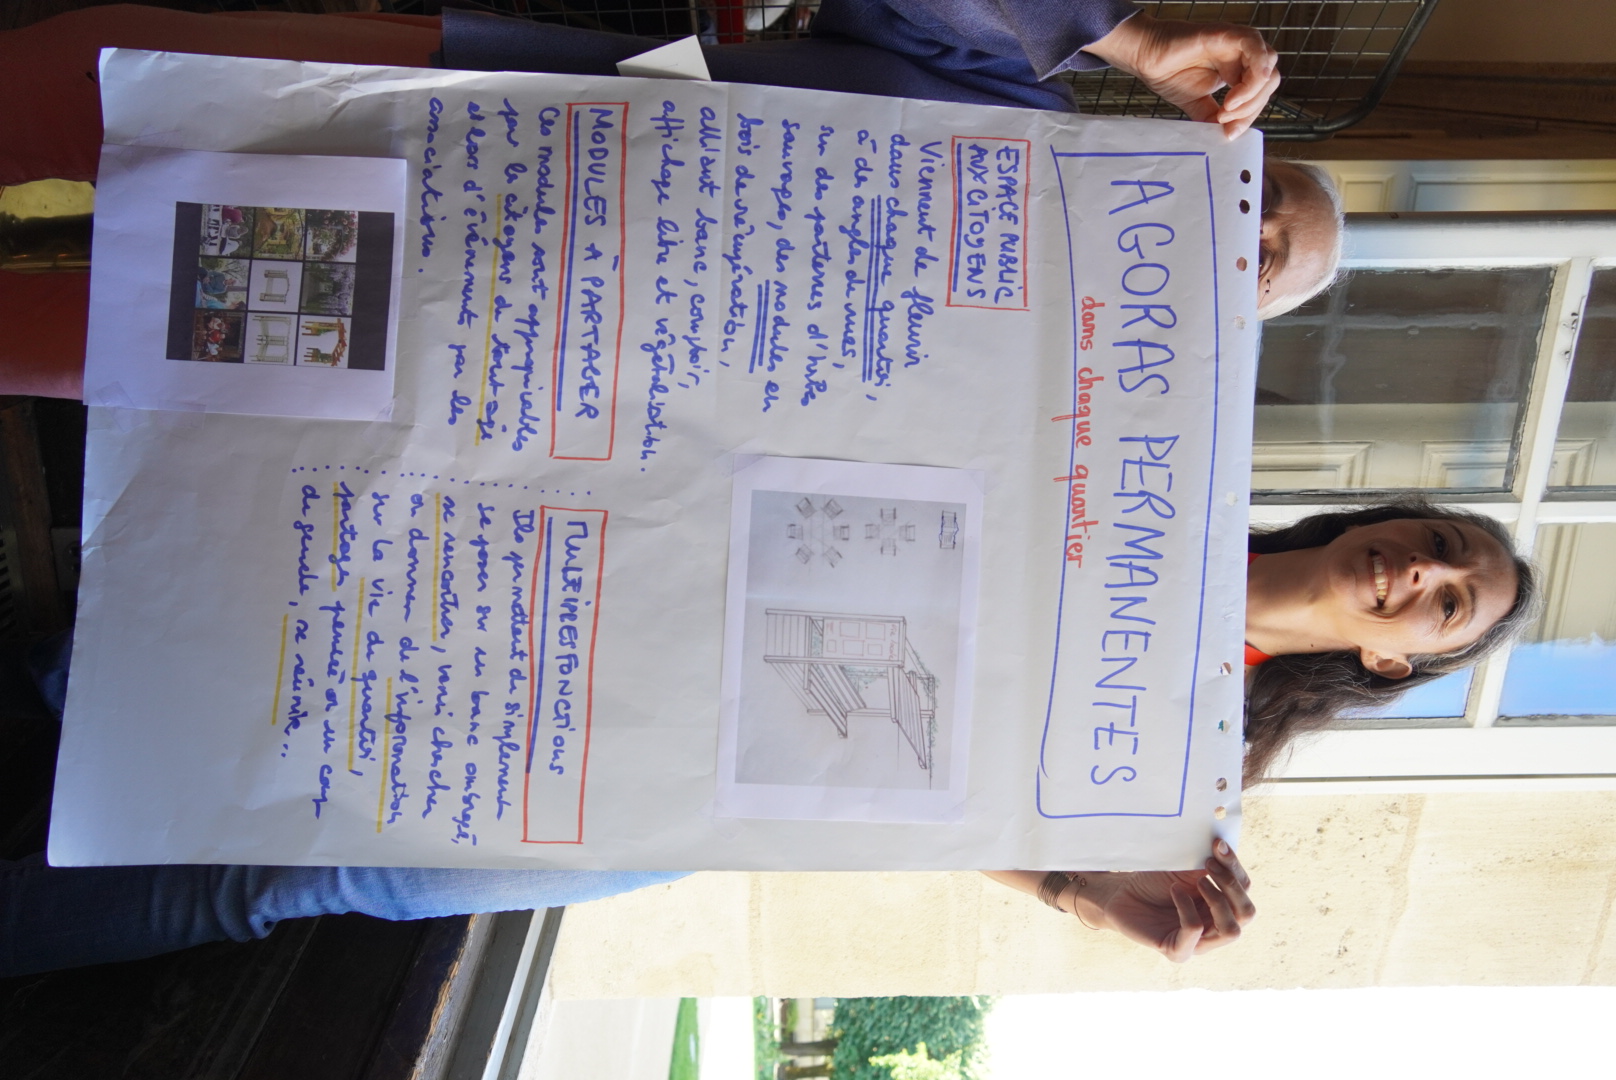 AGORAS PERMANENTES
dans chaque quartier
ESPACE PUBLIC
AUX CITOYENS
Viennent de fleurir
dans chaque quartier,
à des angles de rues,
sur des parterres d'herbes
sauvages, des modules en
bois de récupération,
alliant banc, comptoir,
affichage libre et végétalisation.
MODULES À PARTAGER
Ces modules sont appropriables
par les citoyens de tout âge
et lors d'évènements par les
associations.
MULTIPLES FONCTIONS
Ils permettent de simplement
se poser sur un banc ombragé,
se rencontrer, venir chercher
ou donner de l'information
sur la vie de quartier,
partager pensée ou un coup
de gueule, se réunir...